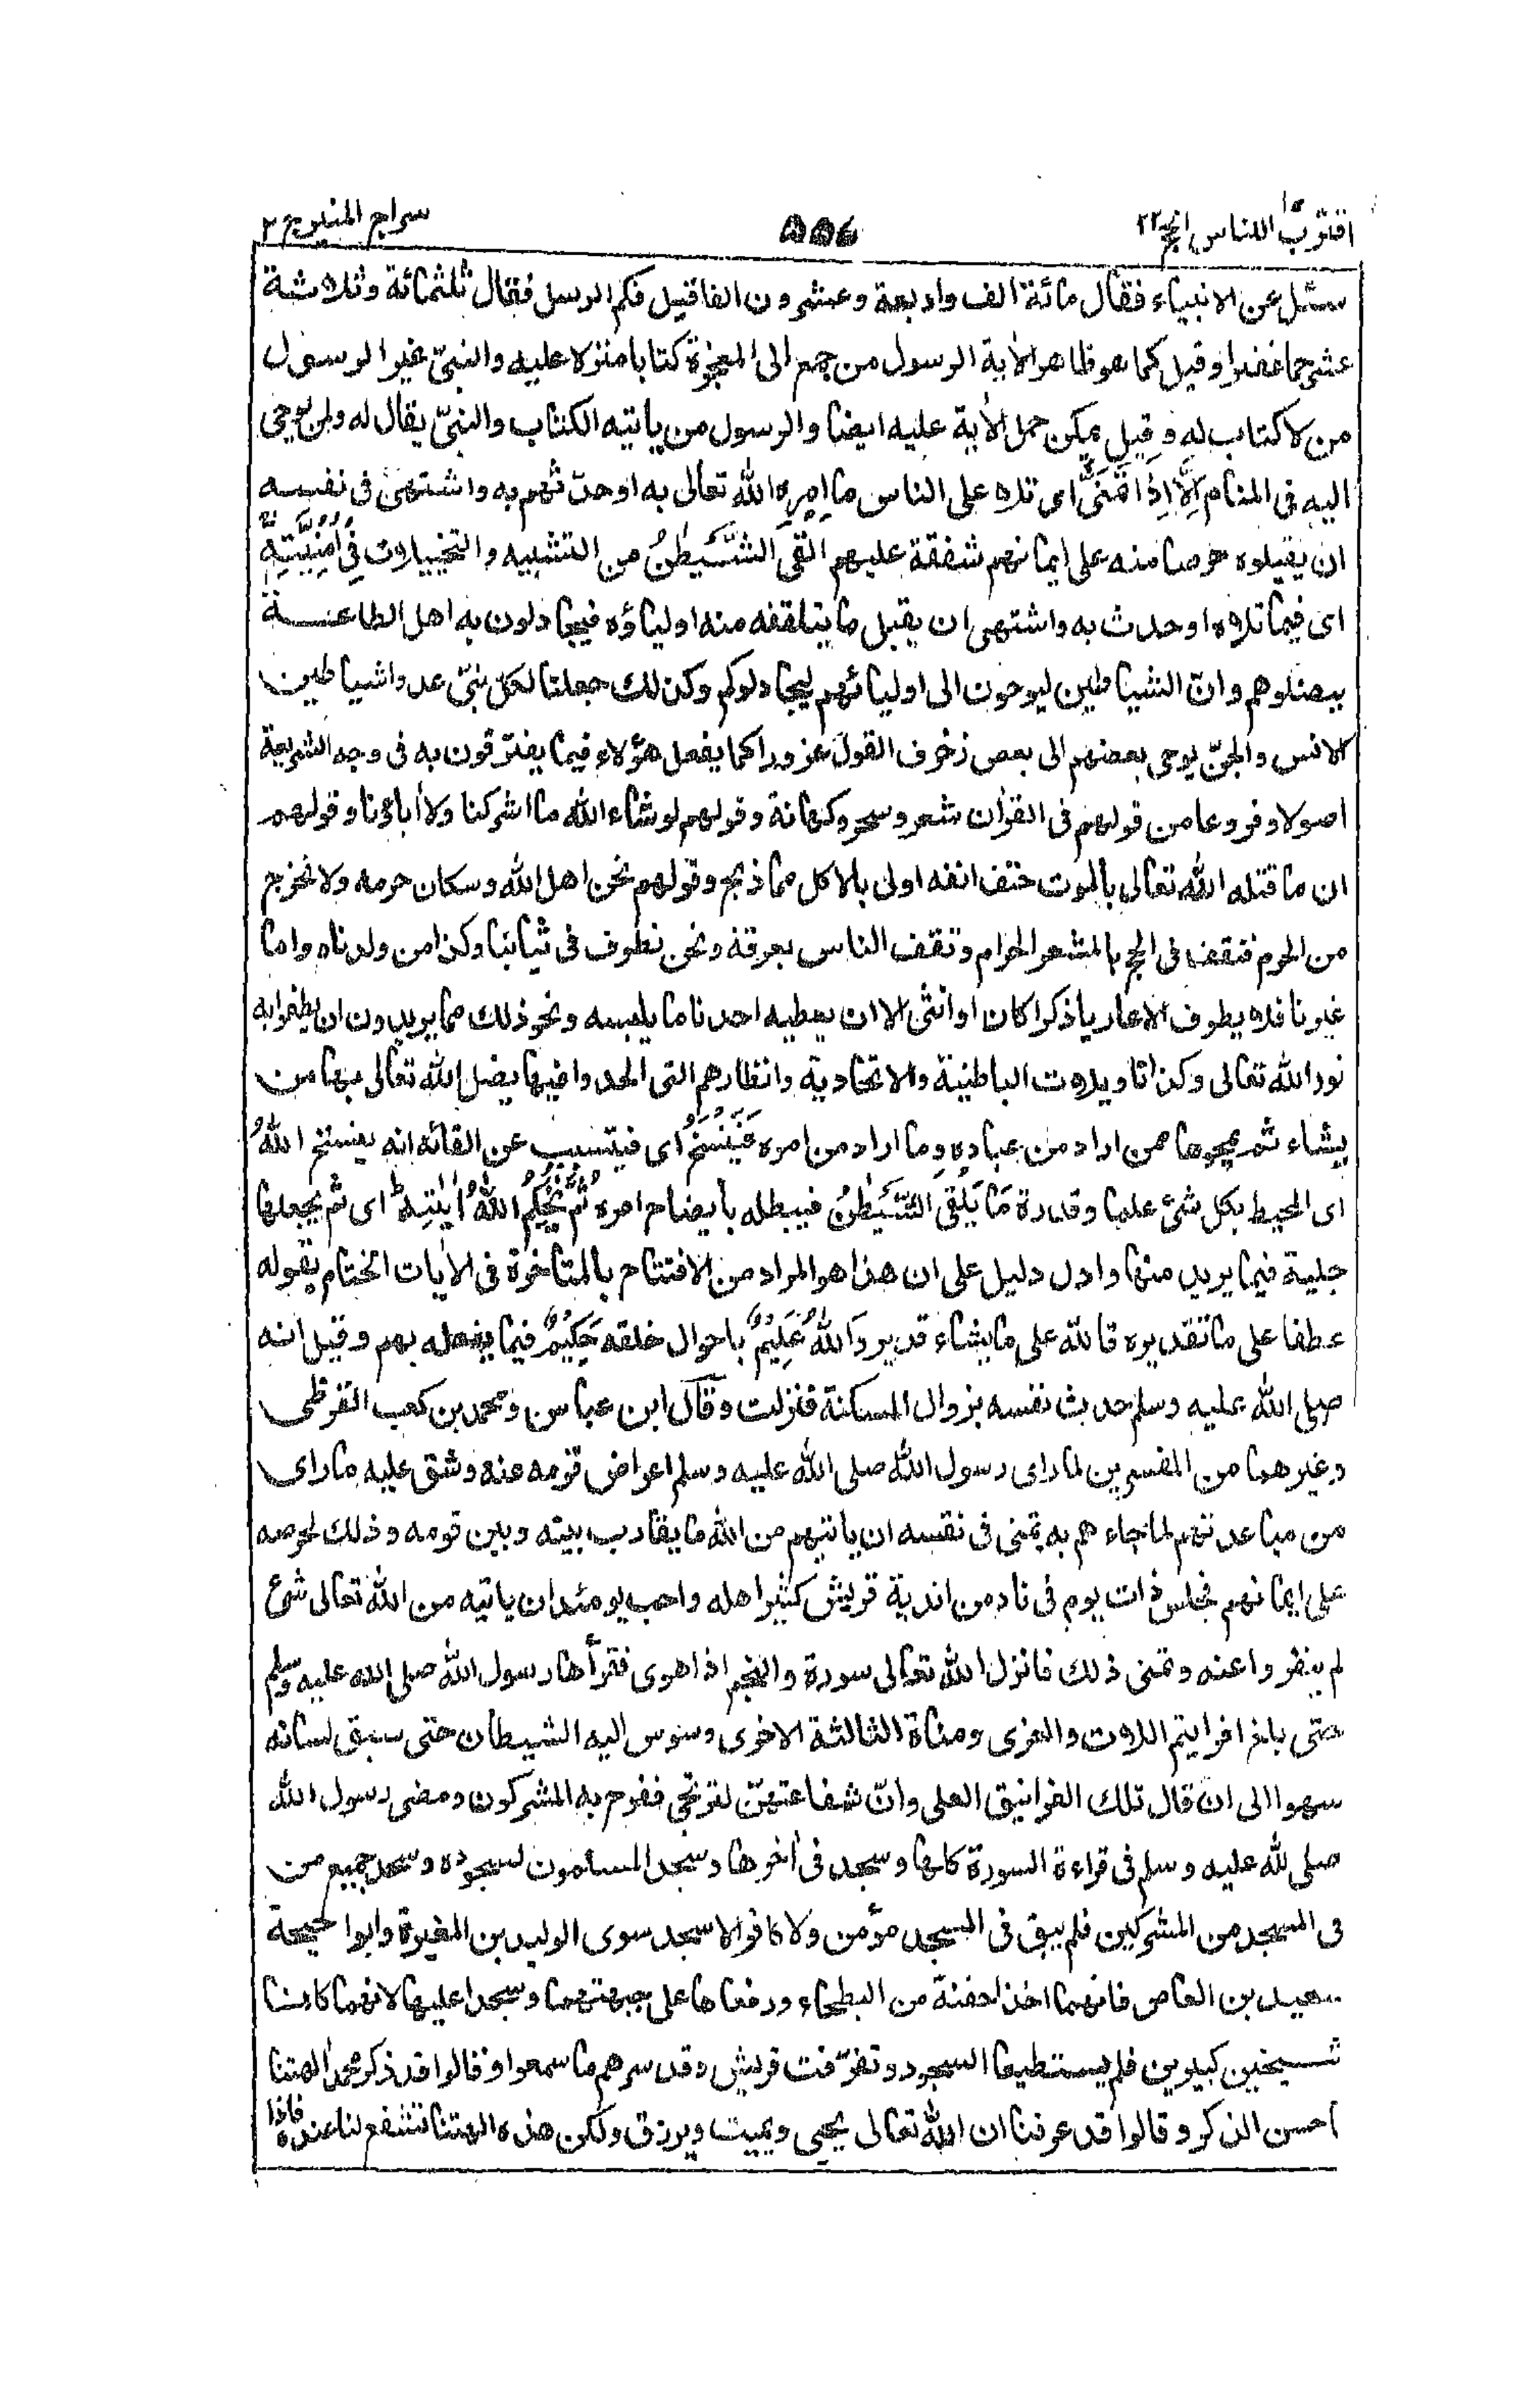 اقترب للناس ١٧ الحج ٢٢
٥٥٧
سراج المنير ج ٢
سئل عن الانبياء فقال مائة الف واربعة وعشرون الفا قيل فكم الرسل فقال ثلثمائة وثلاثة
عشر جما غفيرا وقيل كما هو ظاهر الاٰية الرسول من جمع الى المعجزة كتابا منزلا عليه والنبىّ غير الرسول
من لا كتاب له وقيل يمكن حمل الاٰية عليه ايضا والرسول من ياتيه الكتاب والنبىّ يقال له ولمن يوحى
اليه فى المنام اِلَّا اِذَا تَمَنّٰى اى تلاه على الناس ما امره الله تعالى به او حدّثهم به واشتهى فى نفسه
ان يقبلوه حرصا منه على ايمانهم شفقة عليهم اَلْقَى الشَّيْطٰنُ من التشبيه والتخييلات فِىْ اُمْنِيَّتِهٖ
اى فيما تلاه او حدث به واشتهى ان يقبل ما يتلقفه منه اولياؤه فيجادلون به اهل الطاعة
ليضلوهم وانّ الشياطين ليوحون الى اوليائهم ليجادلوكم وكذلك جعلنا لكل نبىّ عدوا شياطين
الانس والجنّ يوحى بعضهم الى بعض زخرف القول غرورا كما يفعل هؤلاء فيما يفترقون به فى وجه الشريعة
اصولا وفروعا من قولهم فى القراٰن شعر وسحر وكهانة وقولهم لو شاء الله ما اشركنا ولا اٰباؤنا وقولهم
ان ما قتله الله تعالى بالموت حتف انفه اولى بالاكل مما ذبح وقولهم نحن اهل الله وسكان حرمه ولا نخرج
من الحرم فنقف فى الحج بالمشعر الحرام وتقف الناس بعرفة ونحن نطوف فى ثيابنا وكذا من ولدناه واما
غيرنا فلا يطوف الا عاريا ذكرا كان او انثى الا ان يعطيه احدنا ما يلبسه ونحو ذلك مما يريدون ان يطفؤا به
نور الله تعالى وكذا تاويلات الباطنية والاتحادية وانظارهم التى الحدوا فيها يضل الله تعالى بها من
يشاء ثم يمحوها ممن اراد من عباده وما اراد من امره فَيَنْسَخُ اى فيتسبب عن القائه انه ينسخ اللّٰهُ
اى المحيط بكل شئ علما وقدرة مَا يُلْقِى الشَّيْطٰنُ فيبطله بايضاح امره ثُمَّ يُحْكِمُ اللّٰهُ اٰيٰتِهٖ ط اى ثم يجعلها
جلية فيما يريد منها وادل دليل على ان هذا هو المراد من الافتتاح بالمتاخرة فى الاٰيات الختام بقوله
عطفا على ما تقديره فالله على ما يشاء قدير وَاللّٰهُ عَلِيْمٌ باحوال خلقه حَكِيْمٌ فيما يفعله بهم وقيل انه
صلى الله عليه وسلم حدث نفسه بزوال المسكنة فنزلت وقال ابن عباس ومحمد بن كعب القرظى
وغيرهما من المفسرين لما راى رسول الله صلى الله عليه وسلم اعراض قومه عنه وشق عليه ما راى
من مباعدتهم لما جاءهم به تمنى فى نفسه ان ياتيهم من الله ما يقارب بينه وبين قومه وذلك لحرصه
على ايمانهم فجلس ذات يوم فى ناد من اندية قريش كثير اهله واحب يومئذ ان ياتيه من الله تعالى شئ
لم ينفروا عنه وتمنى ذلك فانزل الله تعالى سورة والنجم اذا هوى فقرأها رسول الله صلى الله عليه وسلم
حتى بلغ افرايتم اللات والعزى ومناة الثالثة الاخرى وسوس اليه الشيطان حتى سبق لسانه
سهوا الى ان قال تلك الغرانيق العلى وانّ شفاعتهنّ لترتجى ففرح به المشركون ومضى رسول الله
صلى لله عليه وسلم فى قراءة السورة كلها وسجد فى اٰخرها وسجد المسلمون لسجوده وسجد جميع من
فى المسجد من المشركين فلم يبق فى المسجد مؤمن ولا كافر الا سجد سوى الوليد بن المغيرة وابوا حيحة
سعيد بن العاص فانهما اخذا حفنة من البطحاء ورفعاها على جبهتهما وسجدا عليها لانهما كانا
شيخين كبيرين فلم يستطيعا السجود وتفرّقت قريش وقد سرهم ما سمعوا وقالوا قد ذكر محمد اٰلهتنا
احسن الذكر وقالوا قد عرفنا ان الله تعالى يحيى ويميت ويرزق ولكن هذه اٰلهتنا تشفع لنا عنده فاذا